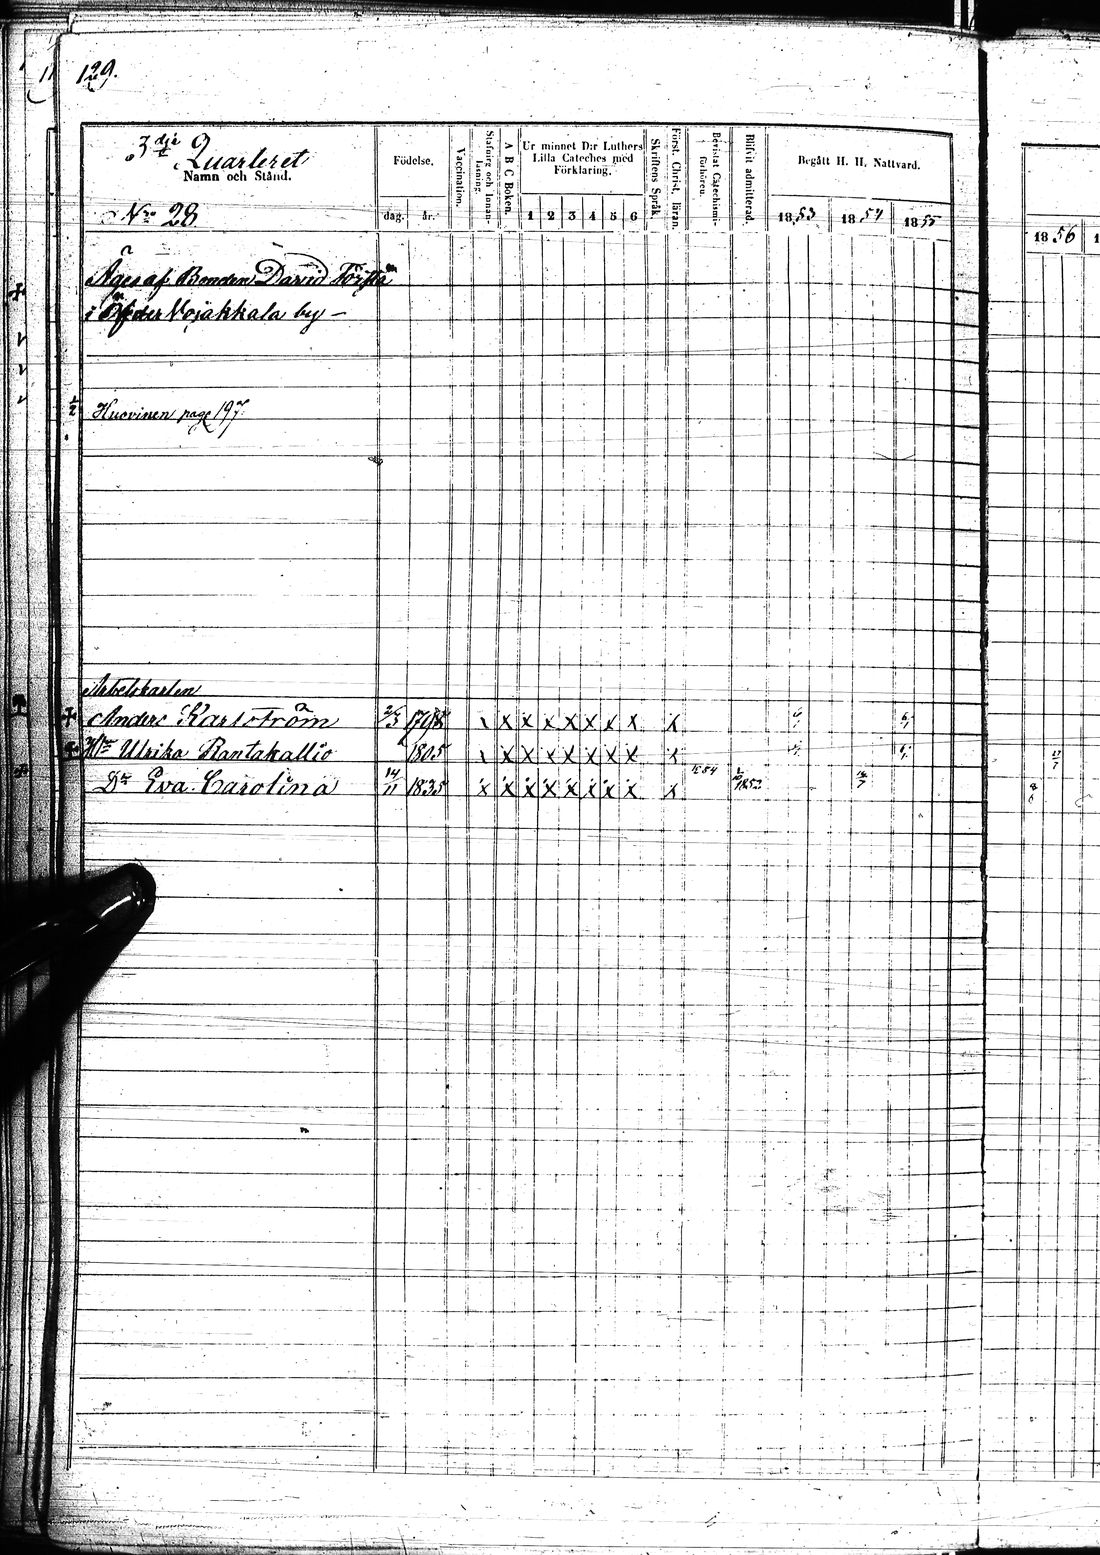 129.
3dje Quarteret
Namn och Stånd.
No 28
Födelse.
dag. år.
Vaccination.
Stafning och Innanläsning.
A B C Boken.
Ur minnet D:r Luthers Lilla Cateches med Förklaring.
1 2 3 4 5 6
Skriftens Språk.
Först. Christ. läran.
Bevistat Catechismiförhören.
Blifvit admitterad.
Begått H. H. Nattvard.
1853 1854 1855
1856
Äges af Bonden David
i Öfver Vojakkala by —
1/2 Huovinen page 197.
Arbetskarlen
Anders Karlström x x x x x x x x
Hu Ulrika Rantakallio 1805 x x x x x x x x
Dr Eva Carolina 14/11 1835 x x x x x x x x x 1852